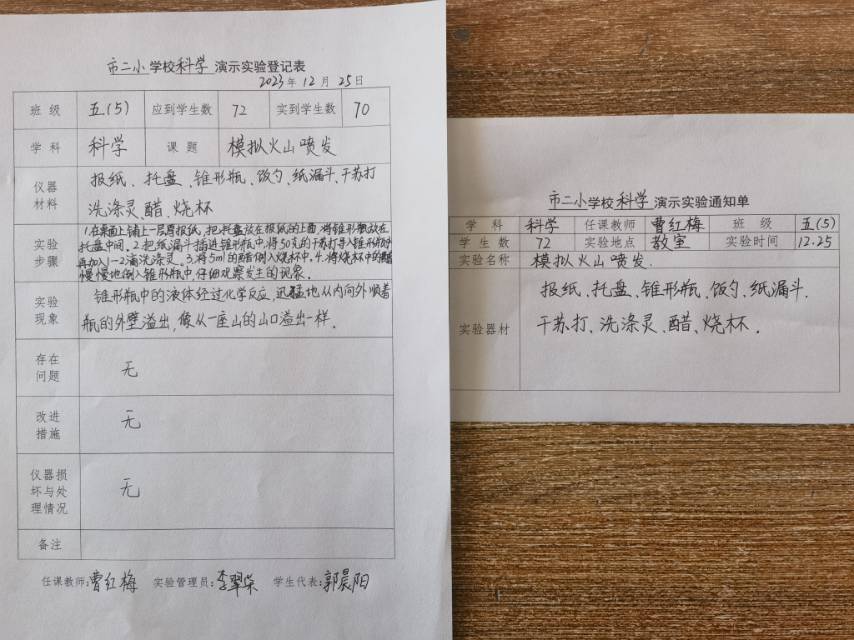 市二小学校科学演示实验登记表
2023年12月25日
班级 五(5) 应到学生数 72 实到学生数 70
学科 科学 课题 模拟火山喷发
仪器材料 报纸、托盘、锥形瓶、饭勺、纸漏斗、干苏打
洗涤灵、醋、烧杯
实验步骤 1.在桌面上铺上一层厚报纸,把托盘放在报纸的上面,将锥形瓶放在
托盘中间。2.把纸漏斗插进锥形瓶中,将50克的干苏打导入锥形瓶,
再加入1-2滴洗涤灵。3.将5ml的醋倒入烧杯中。4.将烧杯中的醋
慢慢地倒入锥形瓶中,仔细观察发生的现象。
实验现象 锥形瓶中的液体经过化学反应,迅猛地从内向外顺着
瓶的外壁溢出,像从一座山的山口溢出一样。
存在问题 无
改进措施 无
仪器损坏与处理情况 无
备注
任课教师:曹红梅 实验管理员:李翠荣 学生代表:郭晨阳
市二小学校科学演示实验通知单
学科 科学 任课教师 曹红梅 班级 五(5)
学生数 72 实验地点 教室 实验时间 12.25
实验名称 模拟火山喷发.
实验器材 报纸、托盘、锥形瓶、饭勺、纸漏斗.
干苏打、洗涤灵、醋、烧杯.